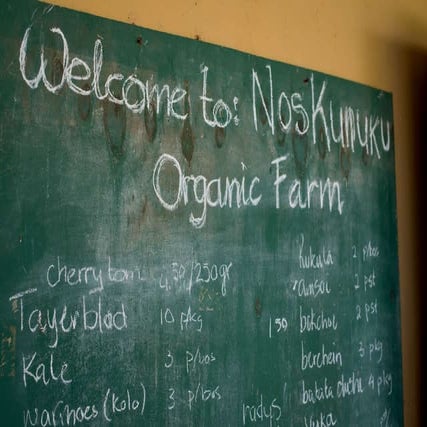 Welcome to: NosKunuku
Organic Farm
cherrytom 4,50/250gr
Tayerblad 10 p/kg
Kale 3 p/bos
warmoes (kolo) 3 p/bos
kukula 2 p/bos
2 pst
bokchoi 2 pst
berchein 3 p/kg
batata duchi 4 p/kg
radys